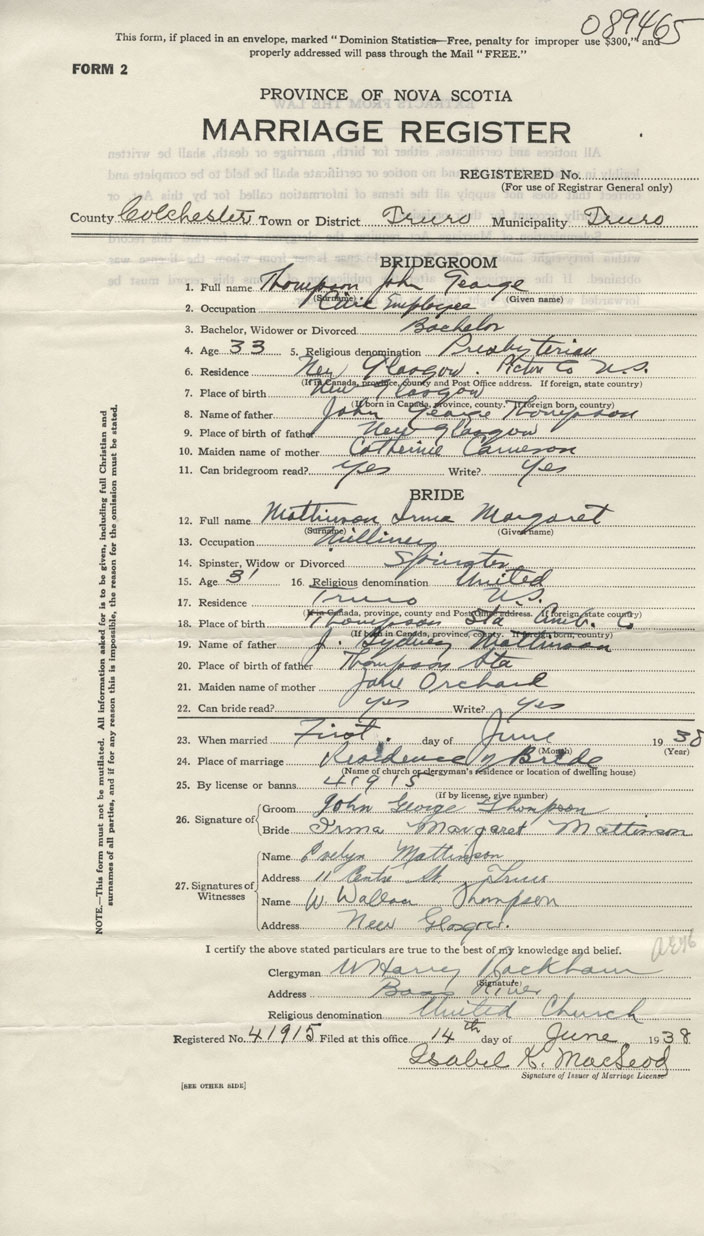 089465
This form, if placed in an envelope, marked "Dominion Statistics—Free, penalty for improper use $300," and
properly addressed will pass through the Mail "FREE."
FORM 2
PROVINCE OF NOVA SCOTIA
MARRIAGE REGISTER
REGISTERED No.
(For use of Registrar General only)
County Colchester Town or District Truro Municipality Truro
BRIDEGROOM
1. Full name Thompson John George
(Surname) (Given name)
2. Occupation Civic Employee
3. Bachelor, Widower or Divorced Bachelor
4. Age 33 5. Religious denomination Presbyterian
6. Residence New Glasgow. Pictou Co N.S.
(If in Canada, province, county and Post Office address. If foreign, state country)
7. Place of birth New Glasgow
(If born in Canada, province, county. If foreign born, country)
8. Name of father John George Thompson
9. Place of birth of father New Glasgow
10. Maiden name of mother Catherine Cameron
11. Can bridegroom read? Yes Write? Yes
BRIDE
12. Full name Mattinson Irma Margaret
(Surname) (Given name)
13. Occupation Milliner
14. Spinster, Widow or Divorced Spinster
15. Age 31 16. Religious denomination United
17. Residence Truro N.S.
(If in Canada, province, county and Post Office address. If foreign, state country)
18. Place of birth Thompson Sta Cumb. Co
(If born in Canada, province, county. If foreign born, country)
19. Name of father J. Sydney Mattinson
20. Place of birth of father Thompson Sta
21. Maiden name of mother Jane Orchard
22. Can bride read? yes Write? yes
23. When married First. day of June 1938
(Month) (Year)
24. Place of marriage Residence of Bride
(Name of church or clergyman's residence or location of dwelling house)
25. By license or banns 41915
(If by license, give number)
26. Signature of Groom John George Thompson
Bride Irma Margaret Mattinson
27. Signatures of Witnesses
Name Evelyn Mattinson
Address 11 Centre St. Truro
Name W. Wallace Thompson
Address New Glasgow.
I certify the above stated particulars are true to the best of my knowledge and belief.
Clergyman W Harvey Rackham
(Signature)
Address Bass River
Religious denomination United Church
Registered No. 41915 Filed at this office 14th day of June 1938
Isabel K. MacLeod
Signature of Issuer of Marriage License
[SEE OTHER SIDE]
NOTE.—This form must not be mutilated. All information asked for is to be given, including full Christian and
surnames of all parties, and if for any reason this is impossible, the reason for the omission must be stated.